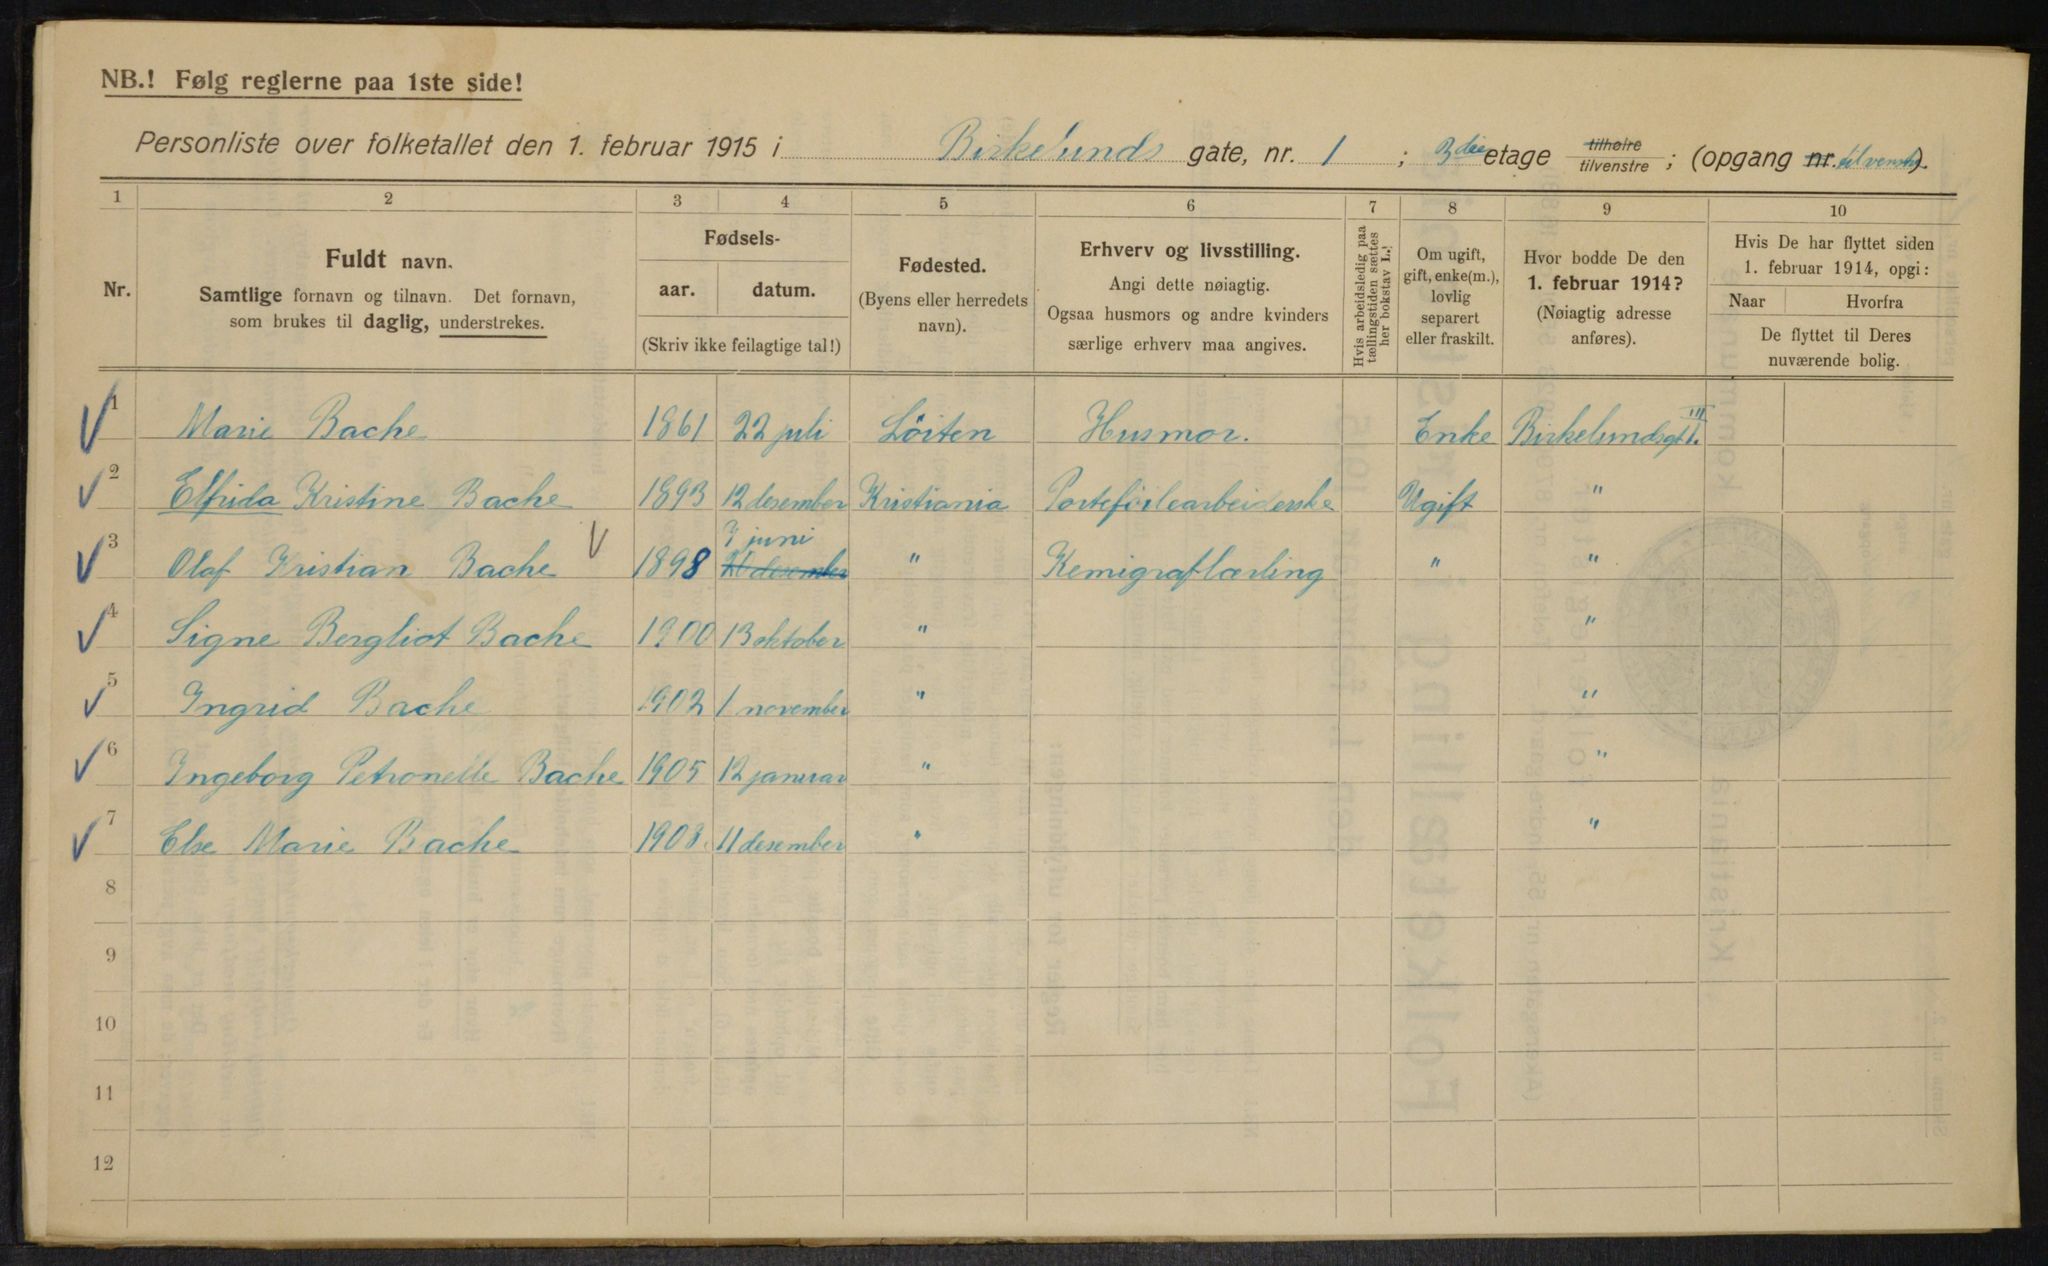 NB.! Følg reglerne paa 1ste side!
Personliste over folketallet den 1. februar 1915 i Birkelunds gate, nr. 1 ; 3die etage tilhøire tilvenstre ; (opgang nr. til venstre)
1 2 3 4 5 6 7 8 9 10
Nr.
Fuldt navn.
Samtlige fornavn og tilnavn. Det fornavn,
som brukes til daglig, understrekes.
Fødsels-
aar. datum.
(Skriv ikke feilagtige tal!)
Fødested.
(Byens eller herredets
navn).
Erhverv og livsstilling.
Angi dette nøiagtig.
Ogsaa husmors og andre kvinders
særlige erhverv maa angives.
Hvis arbeidsledig paa
tællingstiden sættes
her bokstav L.!
Om ugift,
gift, enke(m.),
lovlig
separert
eller fraskilt.
Hvor bodde De den
1. februar 1914?
(Nøiagtig adresse
anføres).
Hvis De har flyttet siden
1. februar 1914, opgi:
Naar Hvorfra
De flyttet til Deres
nuværende bolig.
1 Marie Bache 1861 22 juli Löiten Husmor. Enke Birkelundsgt 1. III
2 Elfrida Kristine Bache 1893 12 desember Kristiania Porteföilearbeiderske Ugift "
3 Olaf Kristian Bache 1898 7 juni desember " Kemigraflærling " "
4 Signe Bergliot Bache 1900 13 oktober " "
5 Ingrid Bache 1902 1 november " "
6 Ingeborg Petronelle Bache 1905 12 januar " "
7 Else Marie Bache 1908. 11 desember " "
8
9
10
11
12